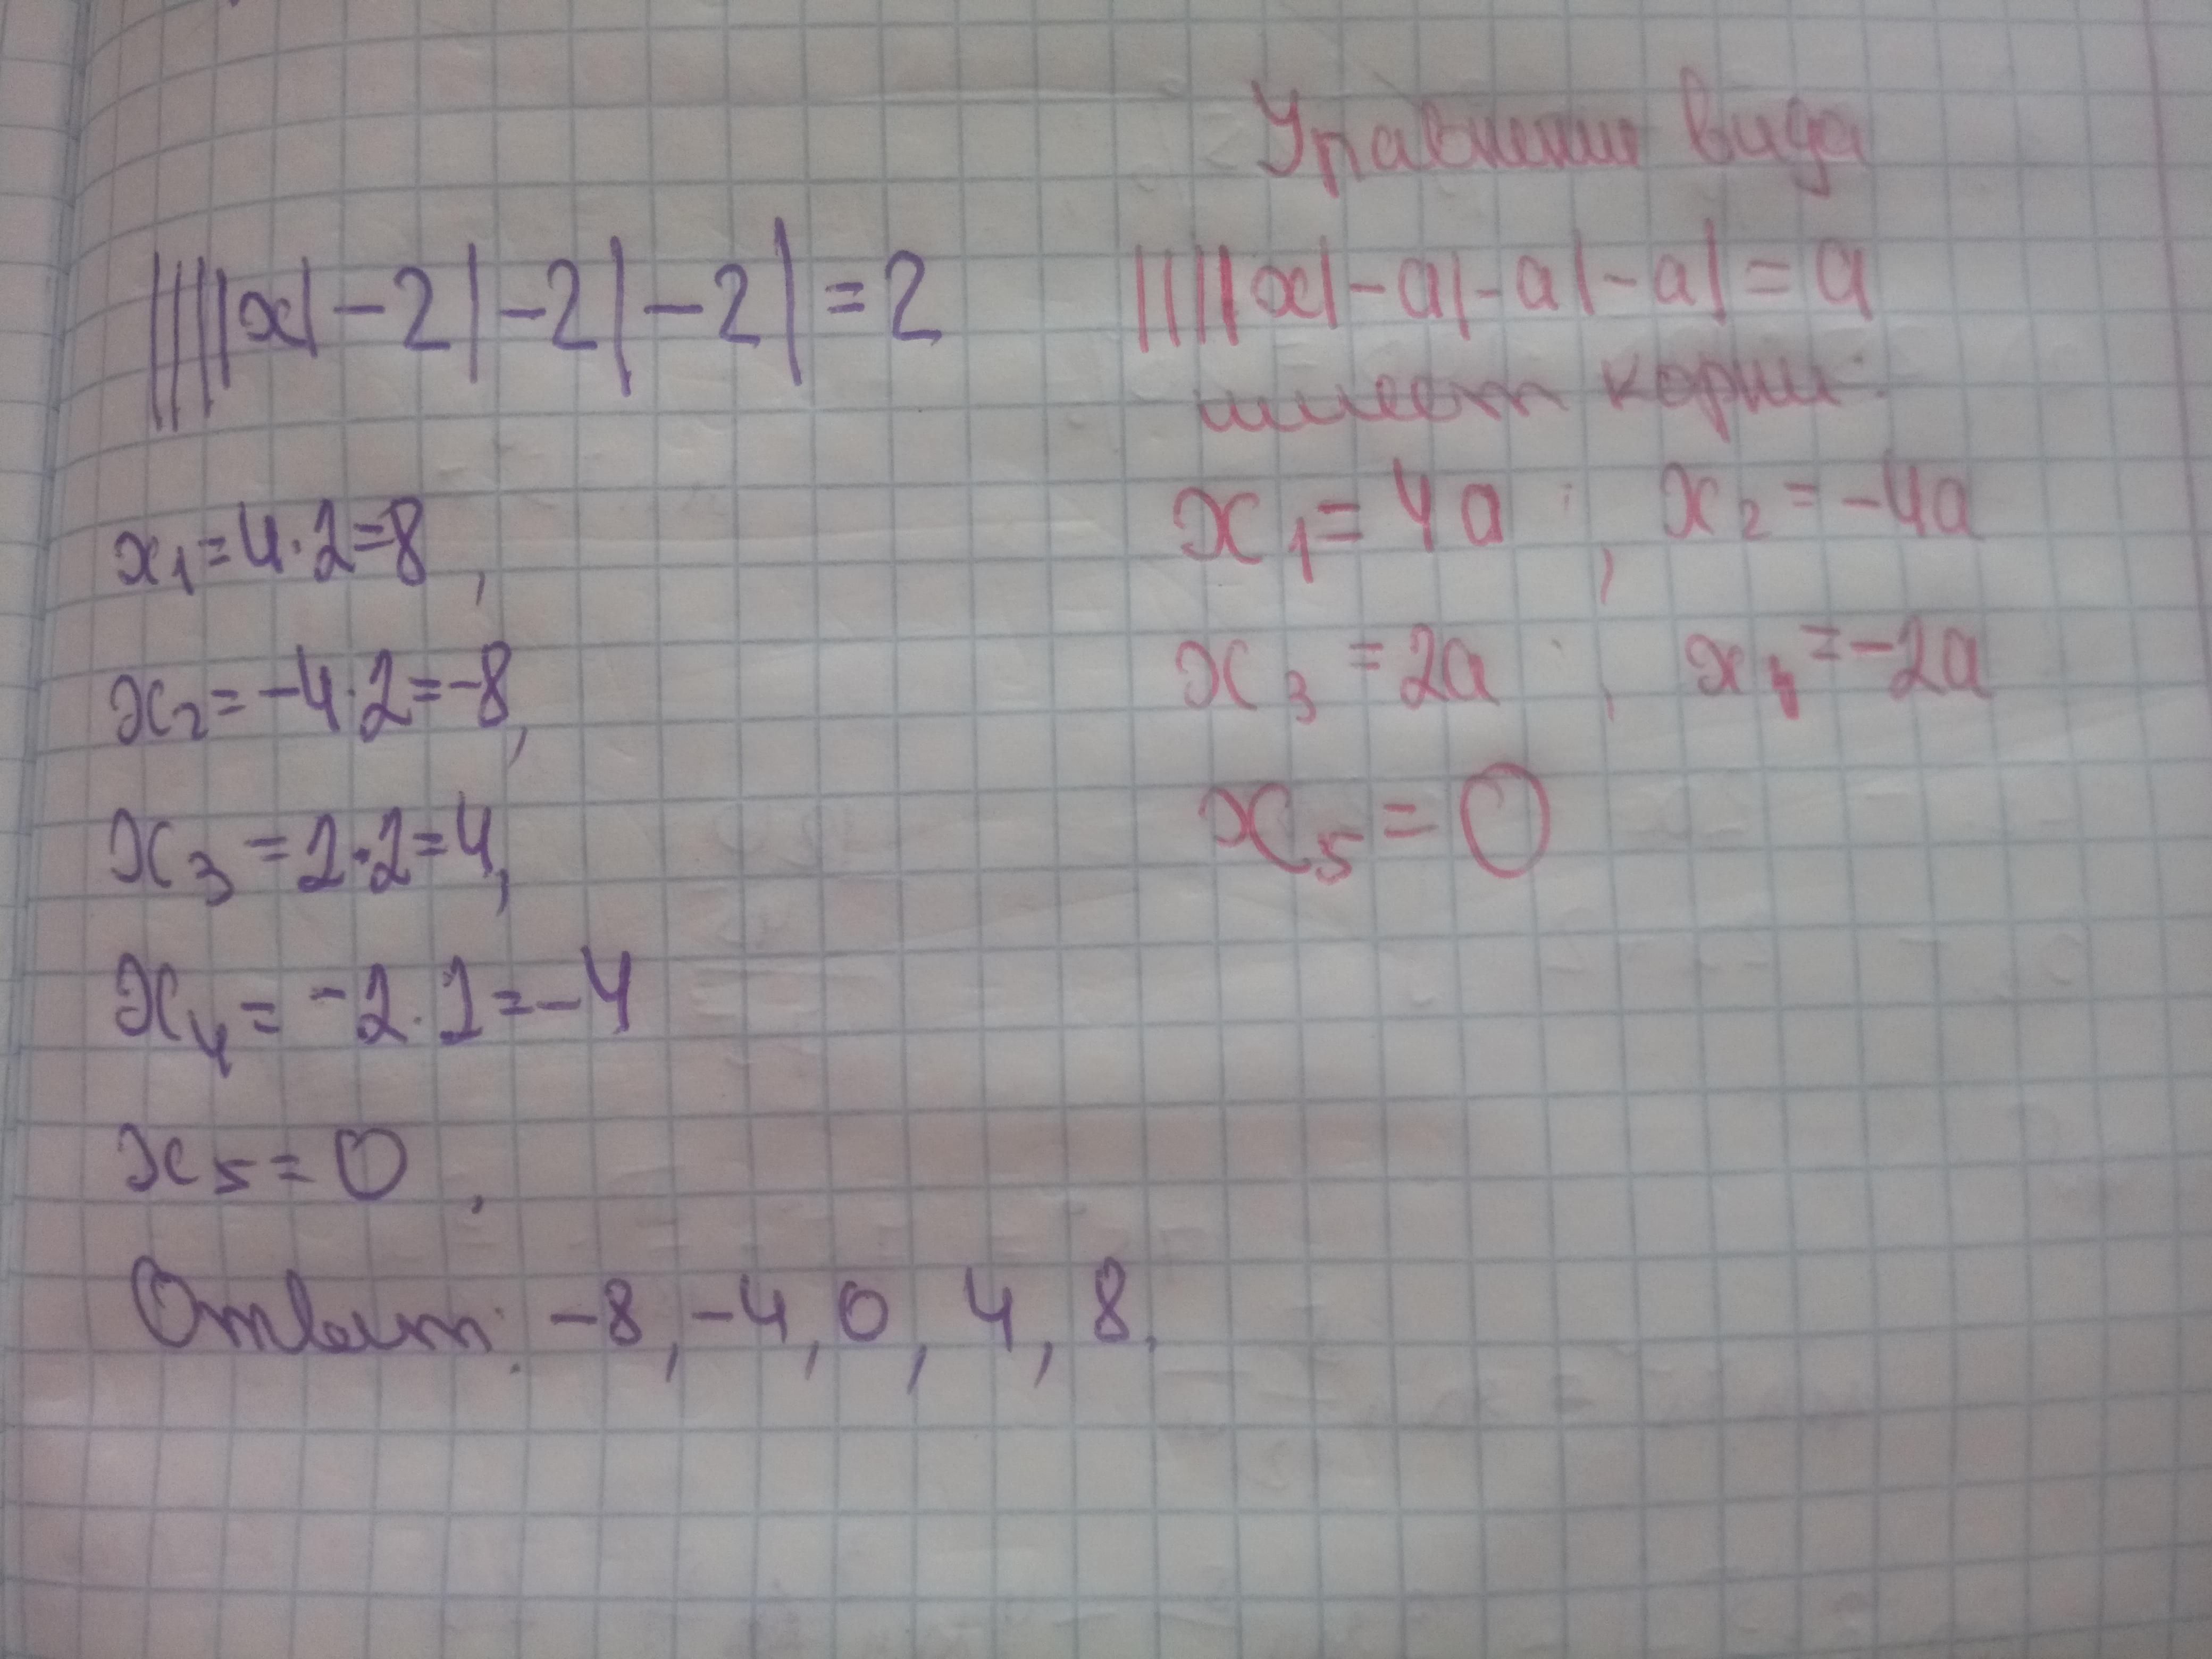 |||||x|-2|-2|-2|=2
x₁=4·2=8,
x₂=-4·2=-8,
x₃=2·2=4,
x₄=-2·2=-4
x₅=0,
Ответ: -8, -4, 0, 4, 8.
Уравнения вида
|||||x|-a|-a|-a|=a
имеет корни:
x₁=4a, x₂=-4a
x₃=2a, x₄=-2a
x₅=0